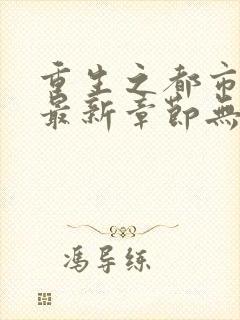 重生之都市
最新章節無
馮导练